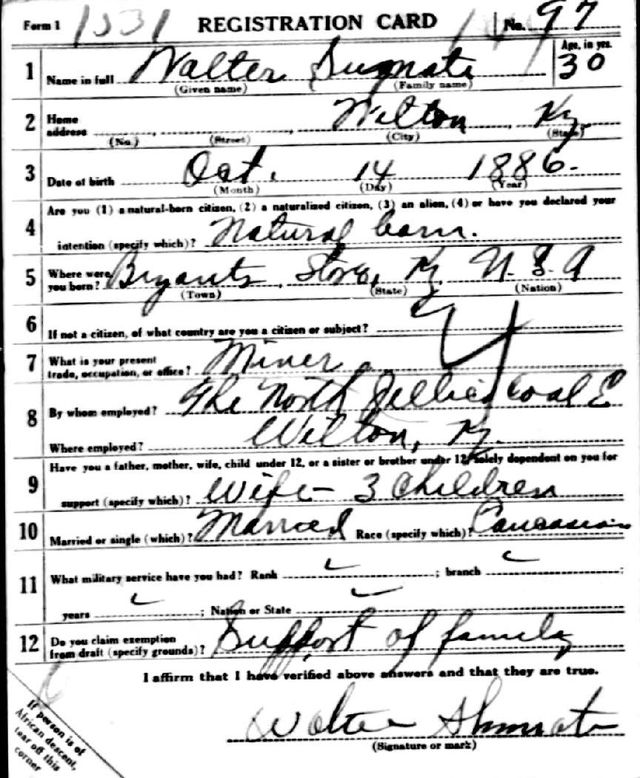 Form 1 1531 REGISTRATION CARD No. 97
1 Name in full Walter Age, in yrs. 30
(Given name) (Family name)
2 Home address Wilton, Ky.
(No.) (Street) (City) (State)
3 Date of birth Oct. 14 1886.
(Month) (Day) (Year)
Are you (1) a natural-born citizen, (2) a naturalized citizen, (3) an alien, (4) or have you declared your
4 intention (specify which)? Natural born.
5 Where were you born? Bryants Store, Ky U.S.A
(Town) (State) (Nation)
6 If not a citizen, of what country are you a citizen or subject?
7 What is your present trade, occupation, or office? Miner
8 By whom employed? The North Jellico Coal
Where employed? Wilton, Ky.
Have you a father, mother, wife, child under 12, or a sister or brother under 12, solely dependent on you for
9 support (specify which)? Wife - 3 Children
10 Married or single (which)? Married Race (specify which)? Caucasian
11 What military service have you had? Rank ; branch ;
years ; Nation or State
12 Do you claim exemption from draft (specify grounds)? Support of family
I affirm that I have verified above answers and that they are true.
Walter
(Signature or mark)
If person is of
African descent,
tear off this
corner.